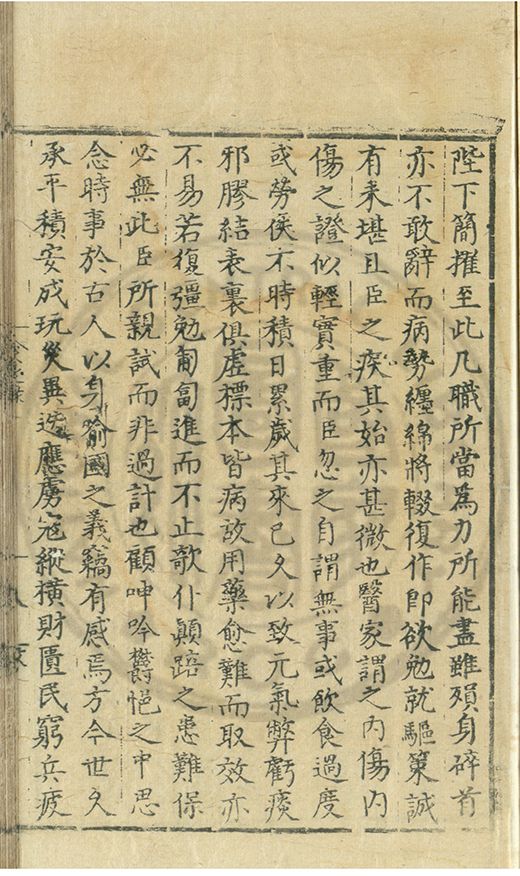 陛下簡擢至此凡職所當爲力所能盡雖殞身碎首
亦不敢辭而病勢纏綿將輟復作卽欲勉就驅策誠
有未堪且臣之疾其始亦甚微也醫家謂之内傷内
傷之證似輕實重而臣忽之自謂無事或飲食過度
或勞俟不時積日累歲其來已久以致元氣弊虧痰
邪膠結表裏俱虛標本皆病故用藥愈難而取效亦
不易若復彊勉匍匐進而不止欹仆顛踣之患難保
必無此臣所親試而非過計也顧呻吟欝悒之中思
念時事於古人以身喻國之義竊有感焉方今世久
承平積安成玩災異迭應虜寇縱横財匱民窮兵疲